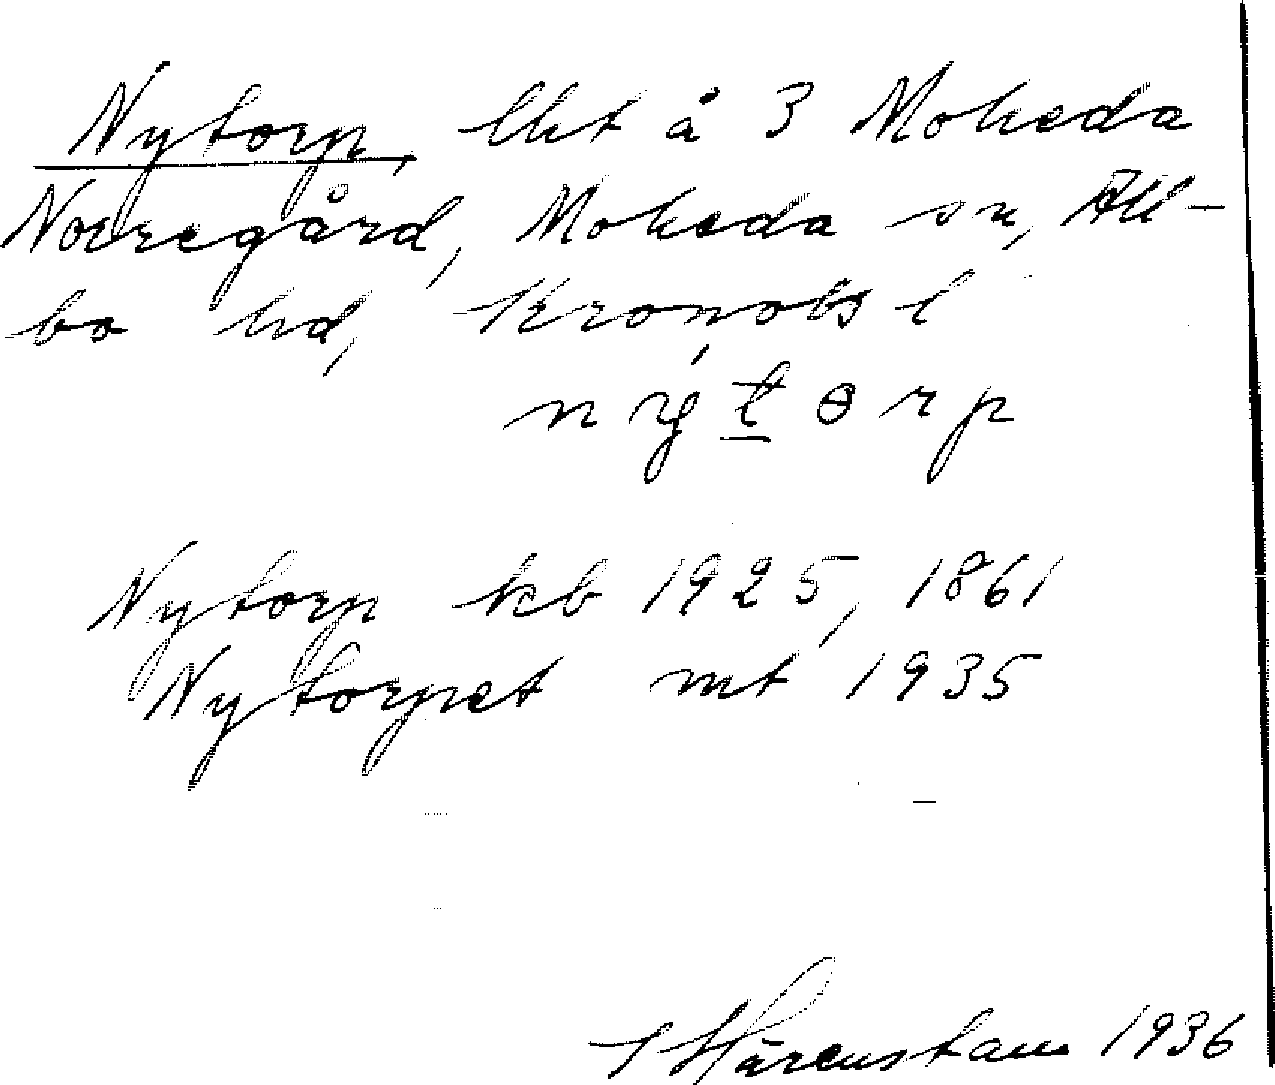 Nytorp, lht å 3 Moheda
Norregård, Moheda sn, All-
bo hd, Kronobs l
ny´t̲ɵrp
Nytorp kb 1925, 1861
Nytorpet mt 1935
S Härenstam 1936